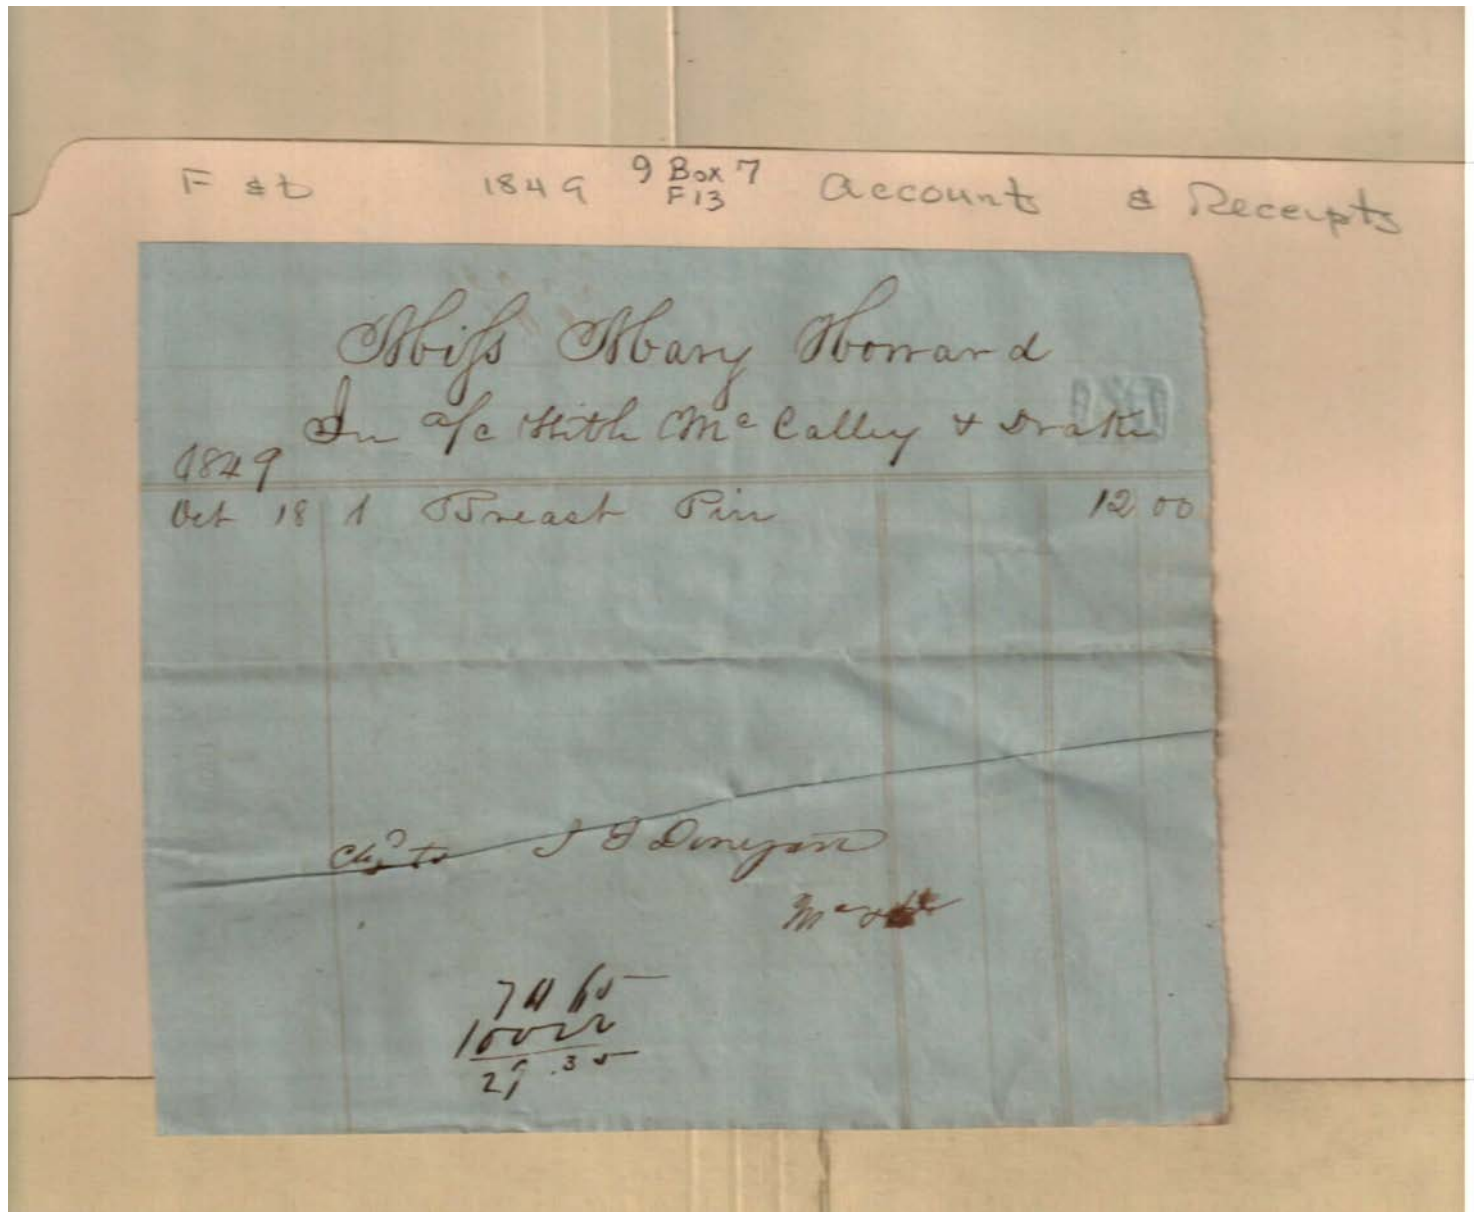 F & D 1849 9 Box 7 Accounts & Receipts
F13
Miss Mary Howard
In a/c With McCalley & Drake
1849
Oct 18 1 Breast Pin 12 00
Chgd to J F Donegan
Mc &
100
29.35